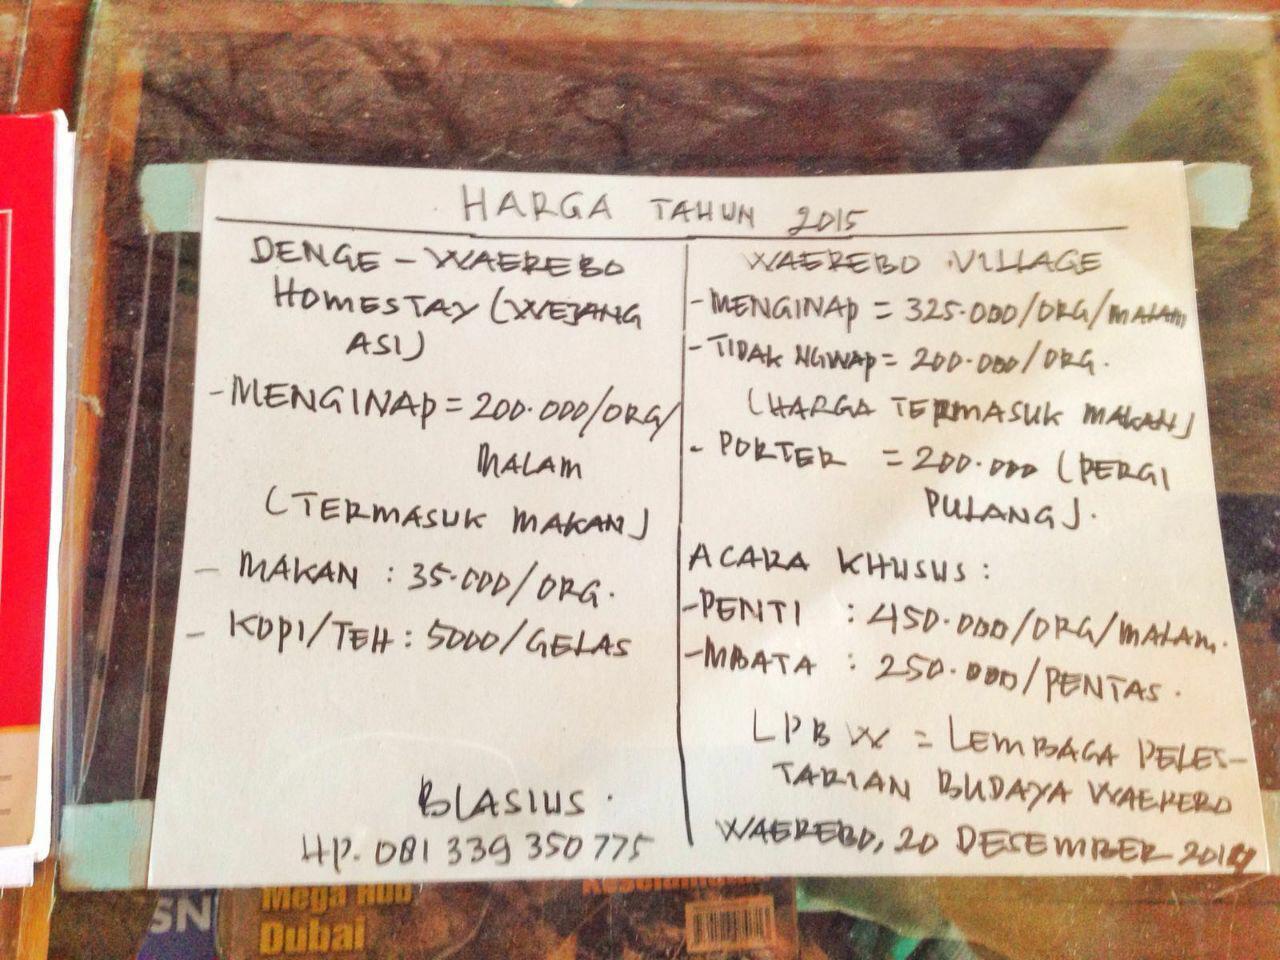 HARGA TAHUN 2015
DENGE - WAEREBO
HOMESTAY (WEJANG
ASI)
- MENGINAP = 200.000/ORG/
MALAM
(TERMASUK MAKAN)
- MAKAN : 35.000/ORG.
- KOPI/TEH : 5000/GELAS
BLASIUS.
HP. 081 339 350 775
WAEREBO VILLAGE
- MENGINAP = 325.000/ORG/MALAM
- TIDAK NGINAP = 200.000/ORG.
(HARGA TERMASUK MAKAN)
- PORTER = 200.000 (PERGI
PULANG).
ACARA KHUSUS :
- PENTI : 450.000/ORG/MALAM.
- MBATA : 250.000/PENTAS.
LPBW = LEMBAGA PELES-
TARIAN BUDAYA WAEREBO
WAEREBO, 20 DESEMBER 2014
SN
Mega Hub
Dubai